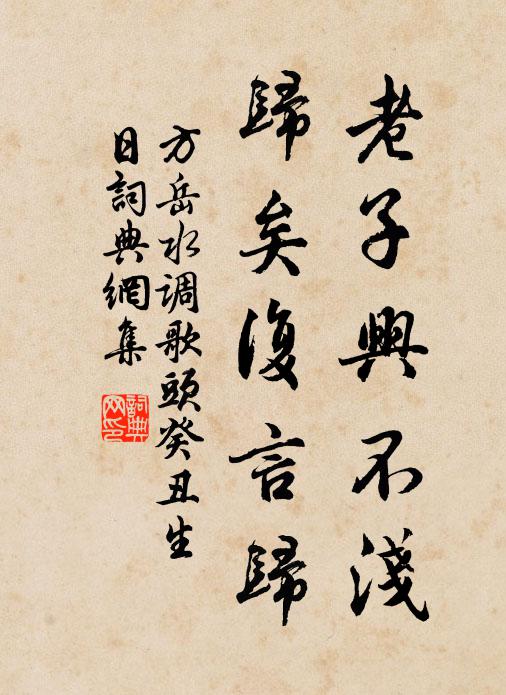 老子興不淺
歸矣復言歸
方岳水调歌頭癸丑生
日詞典網集
詞典網印